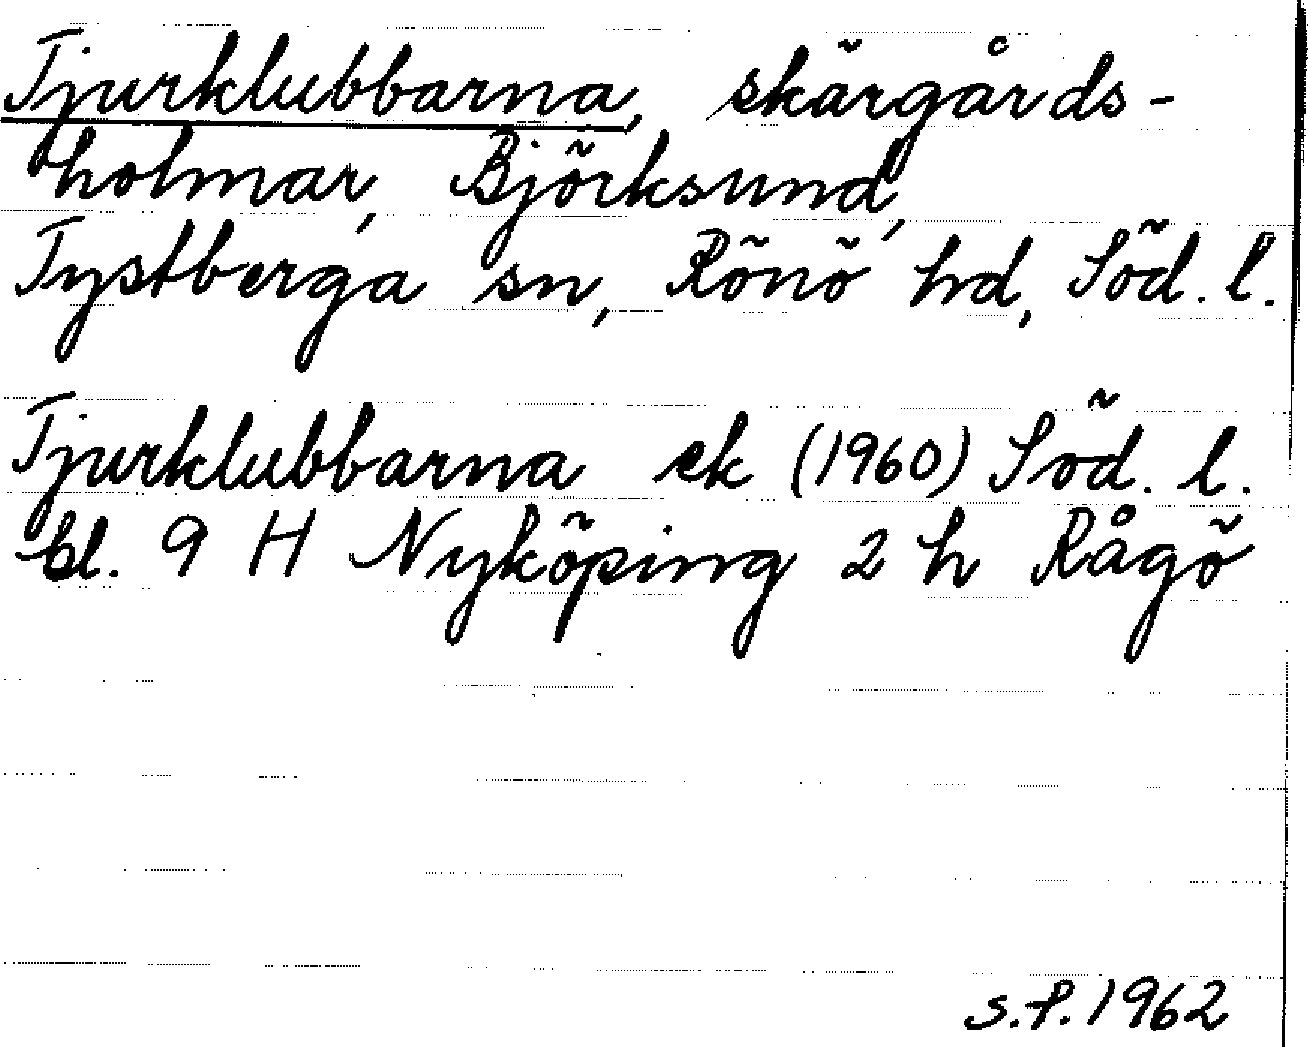 Tjurklubbarna, skärgårds-
holmar, Björksund,
Tystberga sn, Rönö hd, Söd. l.
Tjurklubbarna ek (1960) Söd. l.
bl. 9 H Nyköping 2 h Rågö
s.P. 1962